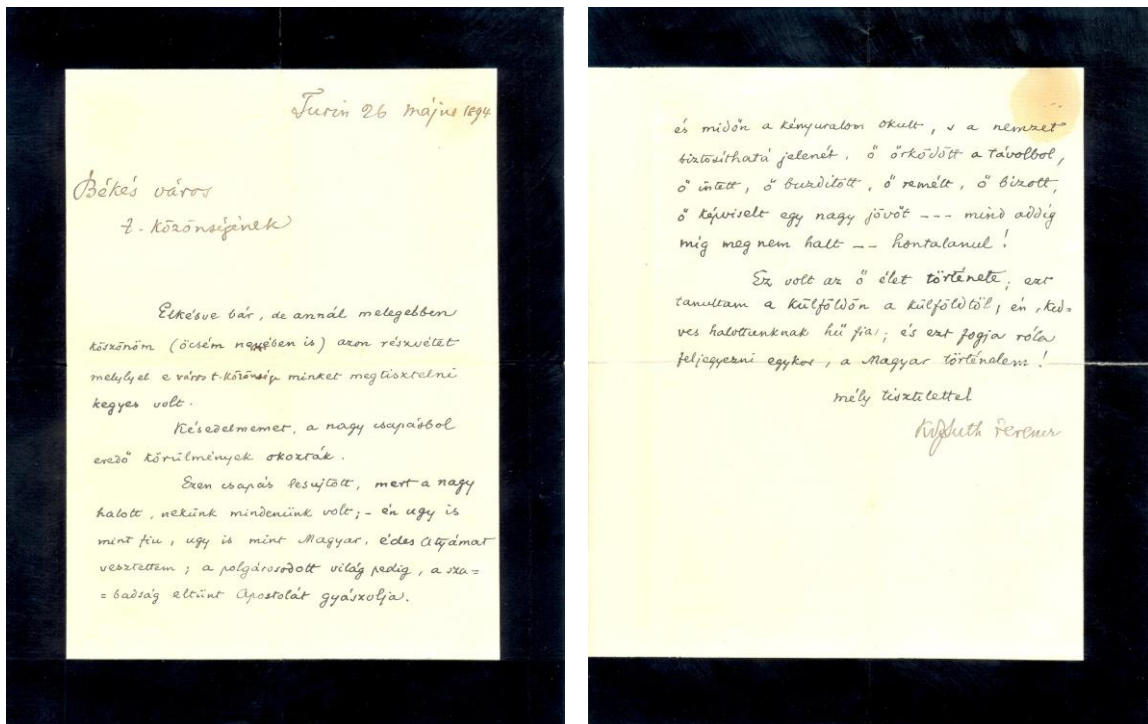 Turin 26 május 1894
Békés város
t. Közönségének
Elkésve bár, de annál melegebben
köszönöm (öcsém nevében is) azon részvétet
melylyel e város t. Közönsége minket megtisztelni
kegyes volt.
Késedelmemet, a nagy csapásbol
eredő körülmények okozták.
Ezen csapás lesujtott, mert a nagy
halott, nekünk mindenünk volt; - én ugy is
mint fiu, ugy is mint Magyar, édes Atyámat
vesztettem; a polgárosodott világ pedig, a sza=
=badság eltünt Apostolát gyászolja.
és midőn a kényuralom okult, s a nemzet
biztosithatá jelenét, ő őrködött a távolbol,
ő intett, ő buzditott, ő remélt, ő bizott,
ő képviselt egy nagy jövőt --- mind addig
mig meg nem halt -- hontalanul!
Ez volt az ő élet története; ezt
tanultam a külföldön a külföldtöl; én, ked=
ves halottunknak hű fia; és ezt fogja róla
feljegyezni egykor, a Magyar történelem!
mély tisztelettel
Kossuth Ferencz